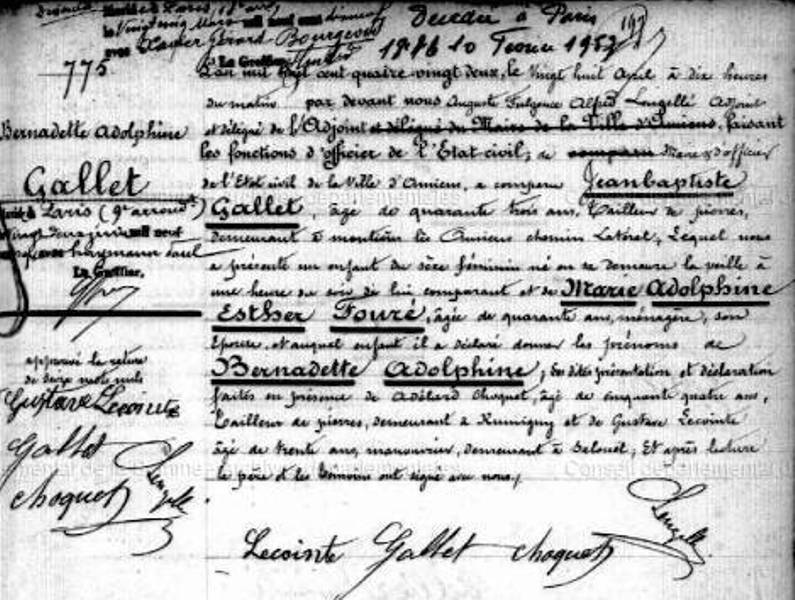 Décédée à Paris
18 10 Février 195
775
Bernadette Adolphine
Gallet
Mariée à Paris (9e arrondt)
mil neuf
avec haymann Paul
Le Greffier,
Marié à Paris, 18e arrt
le Vingt cinq Mars mil neuf cent
avec Xavier Gérard Bourgeois
Le Greffier
L'an mil huit cent quatre vingt deux, le vingt huit avril à dix heures
du matin par devant nous Auguste Fulgence Alfred Lengellé Adjoint
et délégué de l'Adjoint et délégué du Maire de la Ville d'Amiens, faisant
les fonctions d'officier de l'Etat civil, de Maire & d'officier
de l'Etat civil de la Ville d'Amiens, a comparu Jeanbaptiste
Gallet, âgé de quarante trois ans, tailleur de pierres,
demeurant à montières lès Amiens chemin Latéral, Lequel nous
a présenté un enfant du sexe féminin né en sa demeure la veille à
une heure du soir de lui comparant et de Marie Adolphine
Esther Fouré, âgée de quarante ans, ménagère, son
Epouse, et auquel enfant il a déclaré donner les prénoms de
Bernadette Adolphine, Les dites présentation et déclaration
faites en présence de Adélard Choquet, âgé de cinquante quatre ans,
tailleur de pierres, demeurant à Rumigny et de Gustave Lecointe
âgé de trente ans, manouvrier, demeurant à Salouël, Et après lecture
le père et les témoins ont signé avec nous,
approuvé la rature
de mots nuls
Gustave Lecointe
Gallet
choquet
Lengellé
Lecointe Gallet choquet Lengellé
Conseil départemental d